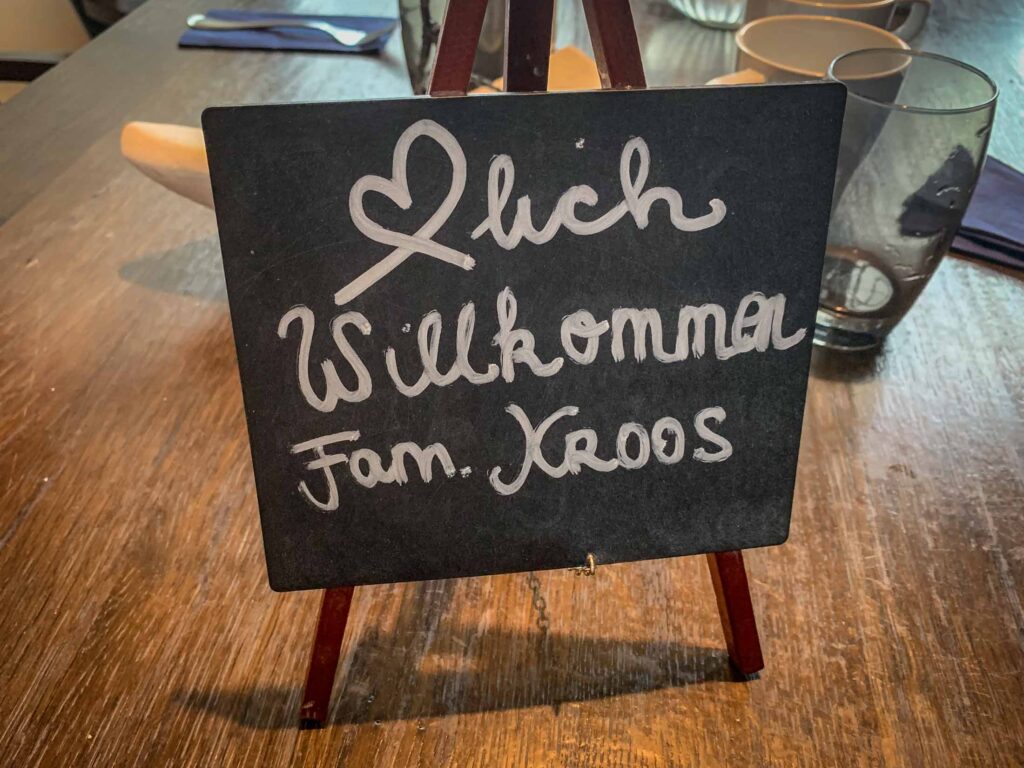 ♡lich
Willkommen
Fam. KROOS